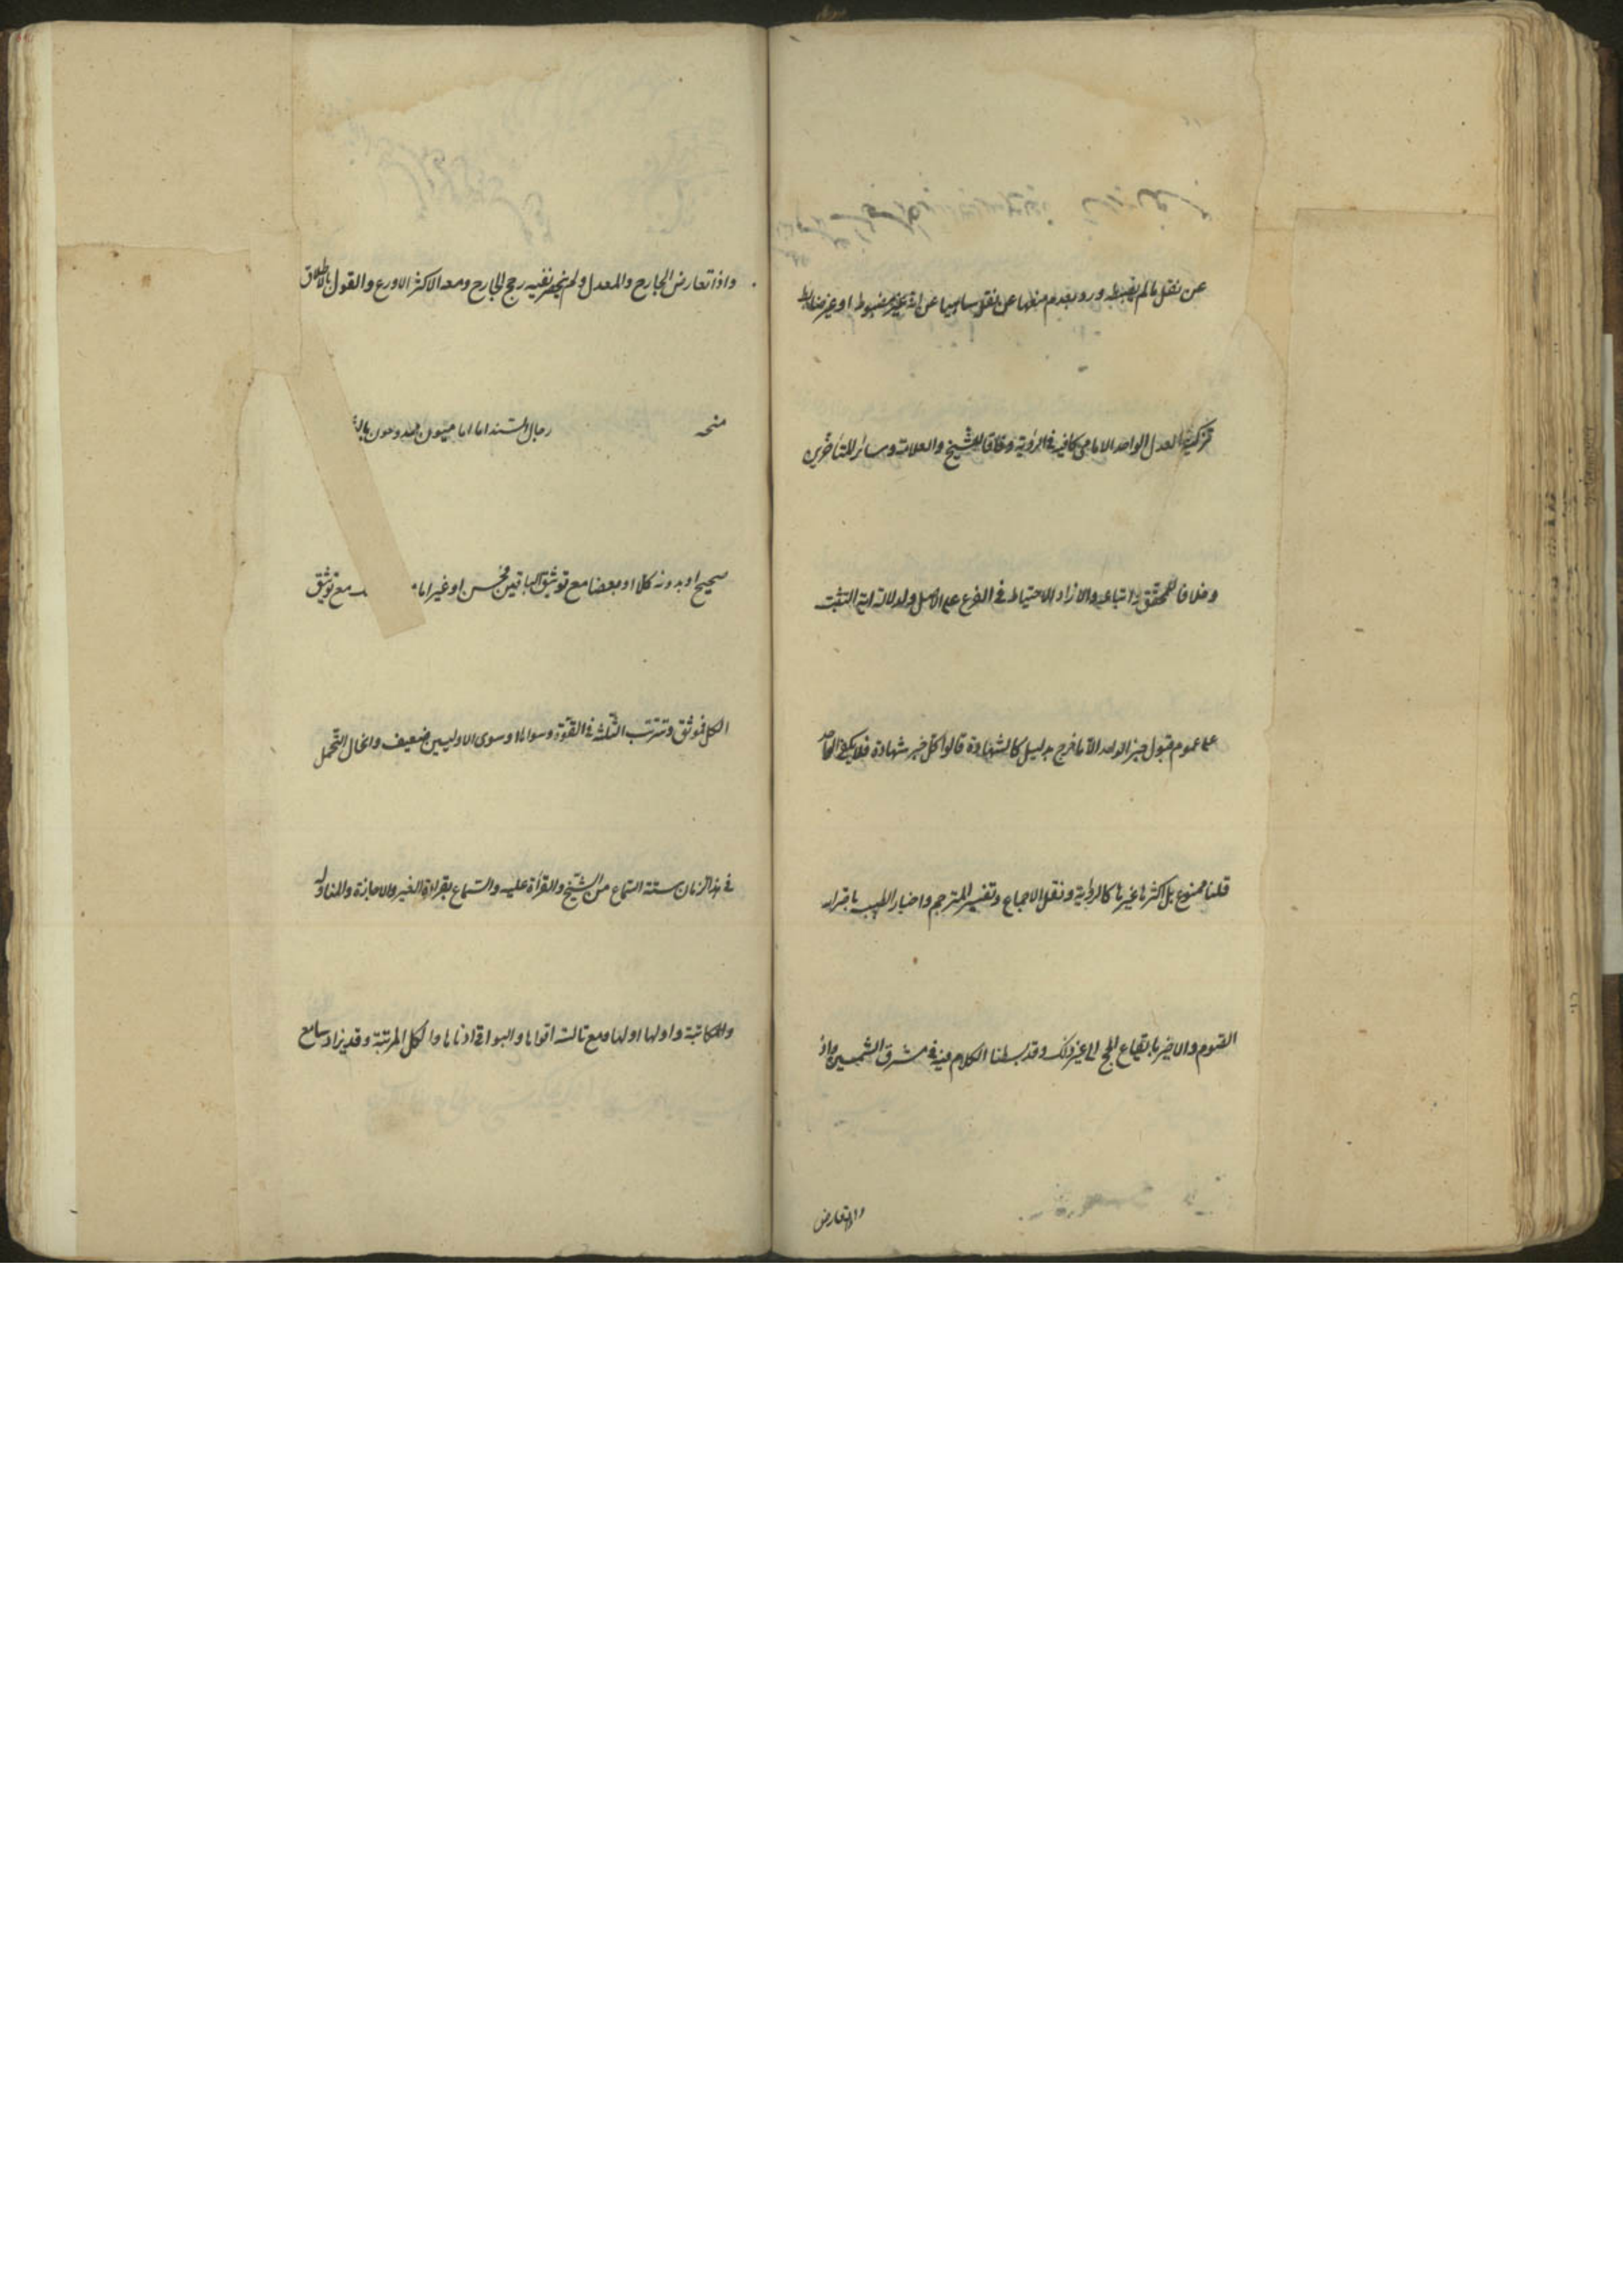 عن نقل ما لم يضبطه ورد بعدم منعها عن نقل ساهيا عن انه غير مضبوط او غير ضابط
تزكية العدل الواحد الامامي كافية في الرواية وفاقا للشيخ والعلامة وسائر المتأخرين
وخلافا للمحقق واتباعه والا زاد الاحتياط في الفرع على الاصل ولدلالة اية التثبت
على عموم قبول خبر الواحد الا ما خرج بدليل كالشهادة قالوا كل خبر شهادة فلا يكفي الواحد
قلنا ممنوع بل اكثرها غيرها كالرواية ونقل الاجماع وتفسير المترجم واخبار الطبيب باضرار
الصوم والاجير بايقاع الحج الى غير ذلك وقد بسطنا الكلام فيه في مشرق الشمسين واذ
واذا تعارض
واذا تعارض الجارح والمعدل ولم ينحصر نفيه رجح الجارح ومعه الاكثر الاورع والقول بالاطلاق
منحه رجال السند اما اماميون ممدوحون بالت
صحيح او بدونه كلا او بعضا مع توثيق الباقين فحسن او غير اما مع توثيق
الكل فموثق وتترتب الثلثة في القوة وسواها وسوى الاوليين ضعيف وانحاء التحمل
في هذا الزمان ستة السماع من الشيخ والقراءة عليه والسماع بقراءة الغير والاجازة والمناولة
والمكاتبة واولها اولها ومع ثالثه اقواها والبواقي ادناها والكل المرتبة وقد يزاد سامع